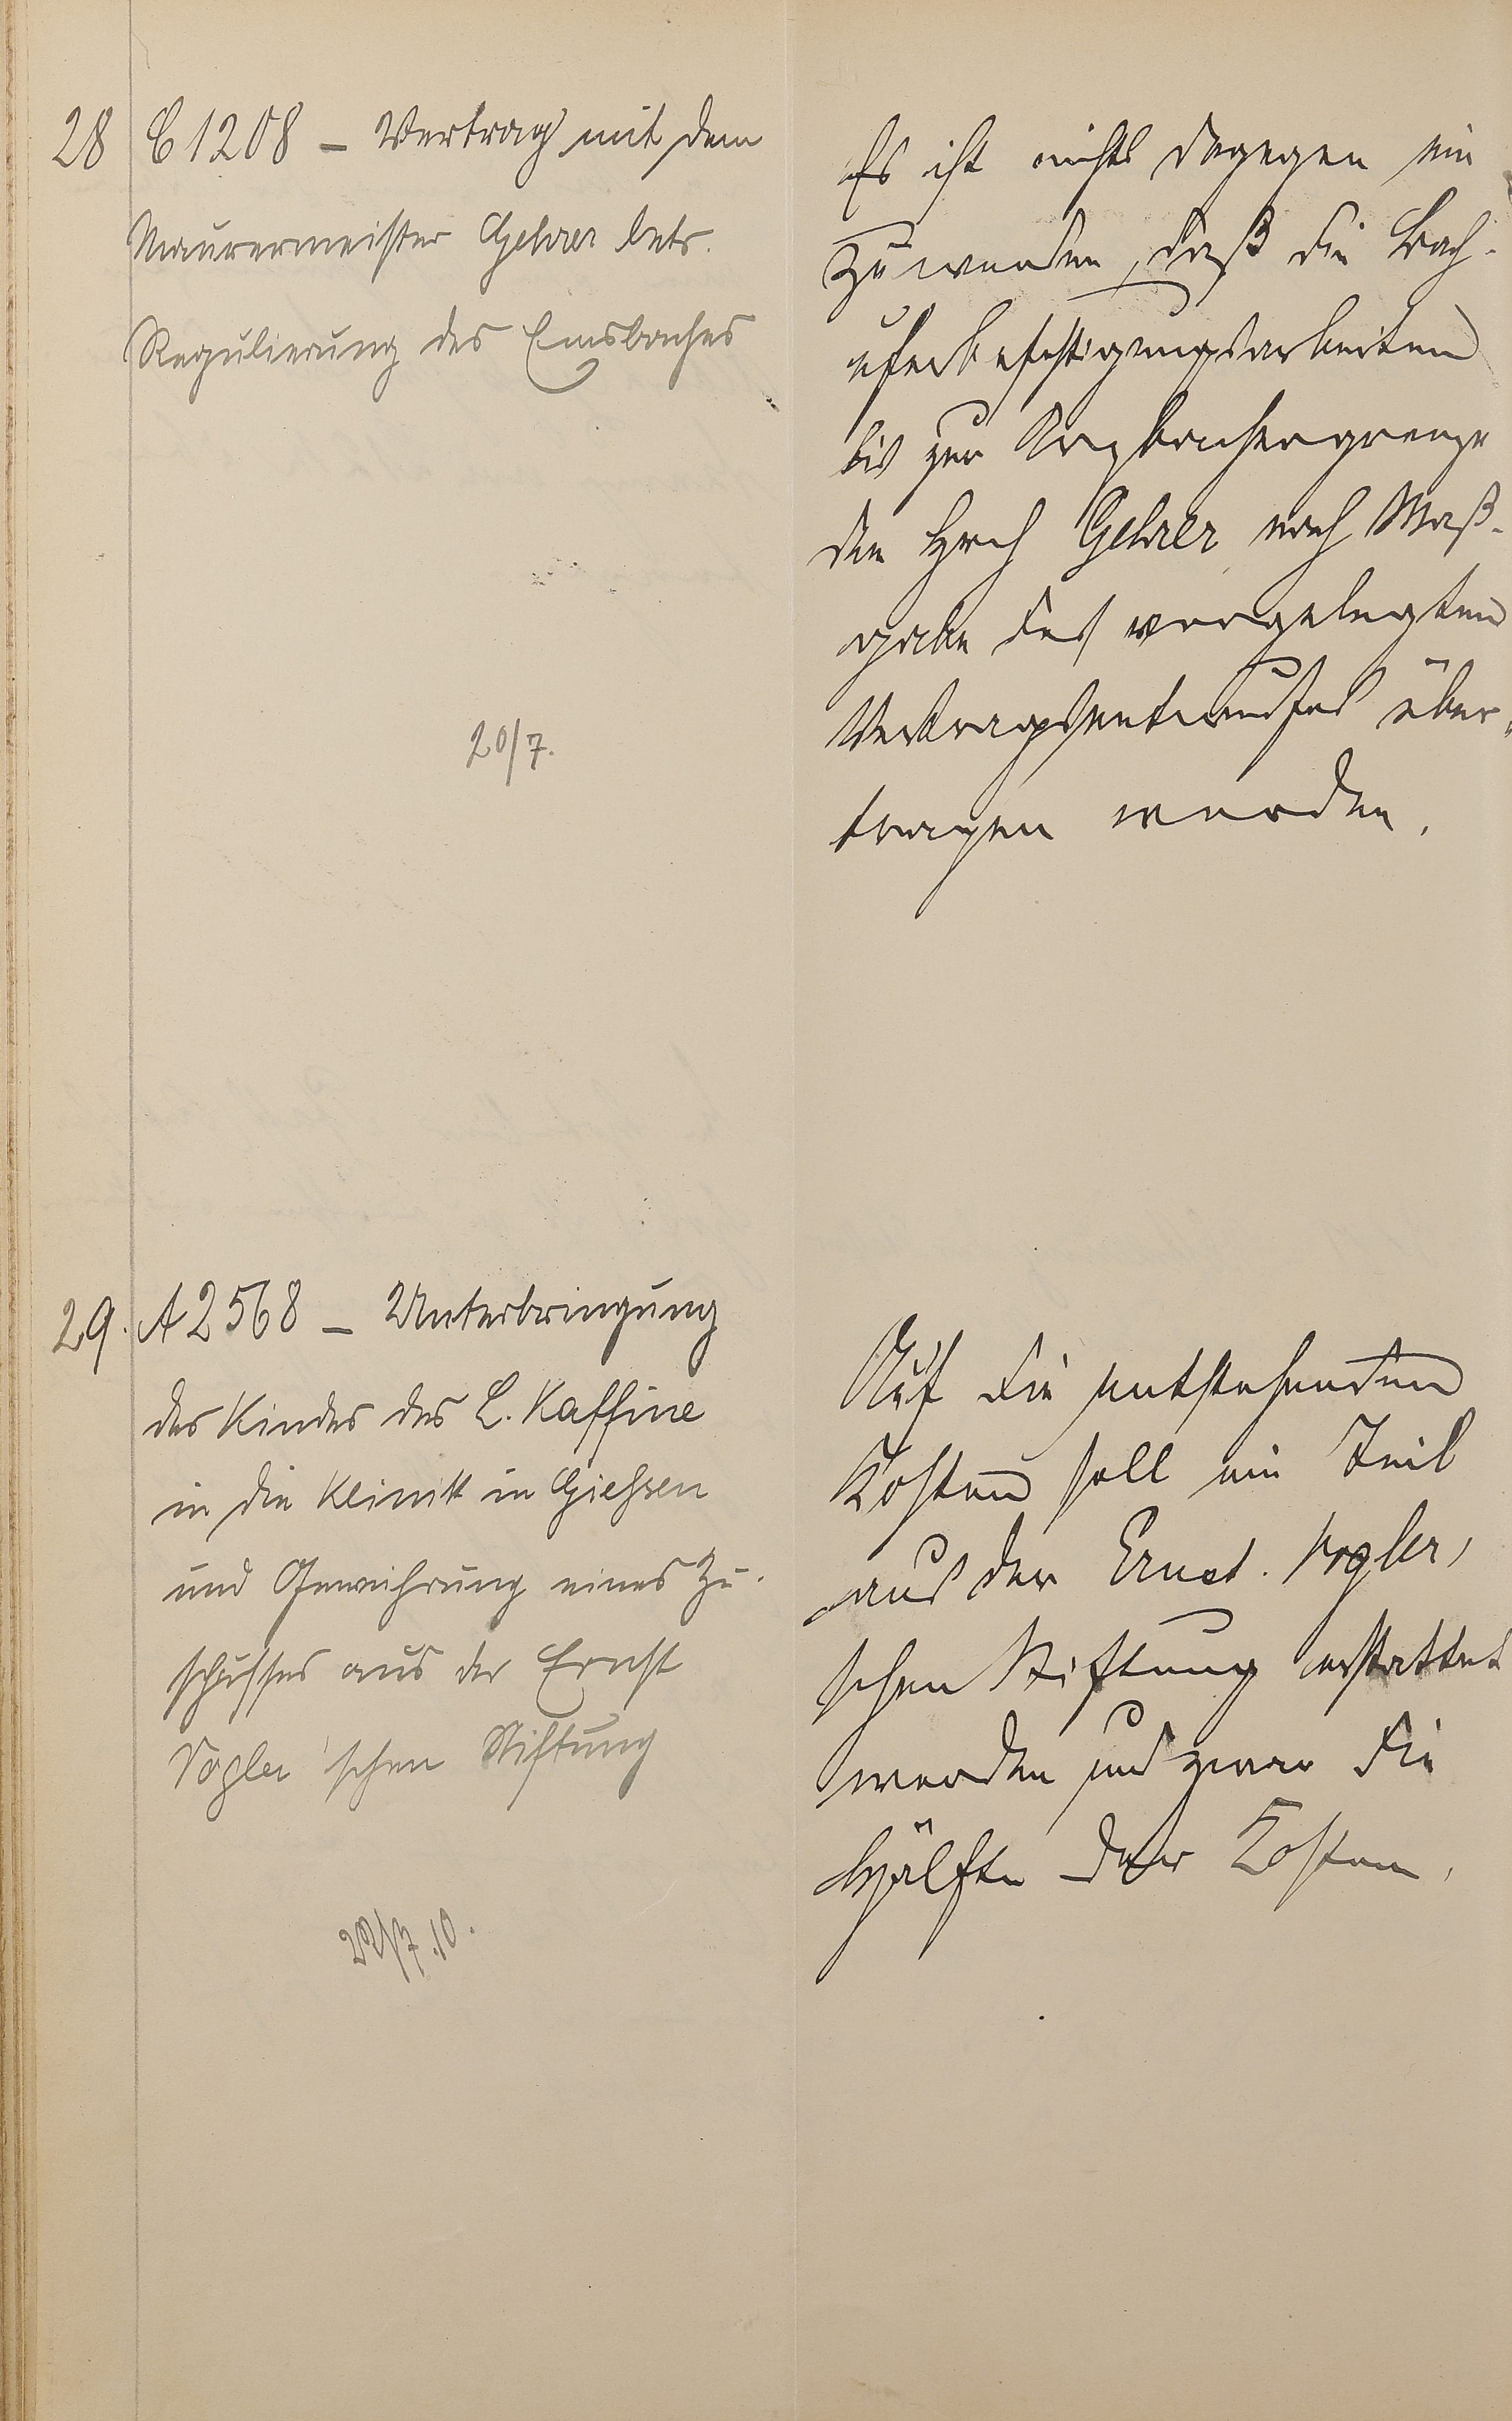 28 C 1208 – Vertrag mit dem
Maurermeister Gehrer betr.
Regulierung des Emsbaches
20/7.
Es ist nichts dagegen ein
zuwenden, daß die Bach-
uferbefestigungsarbeiten
bis zur
dem Gehrer nach Maß-
gabe des vorgelegten
Vertragsentwurfes über-
tragen werden.
29. A 2568 – Unterbringung
des Kindes des L. Kaffine
in die Klinik in Giessen
und Gewährung eines Zu-
schusses aus der Ernst
Vogler'schen Stiftung
22/7.10.
Auf die entstehenden
Kosten soll ein Teil
aus der Ernst. Vogler,
schen Stiftung erstattet
werden und zwar die
Hälfte der Kosten.